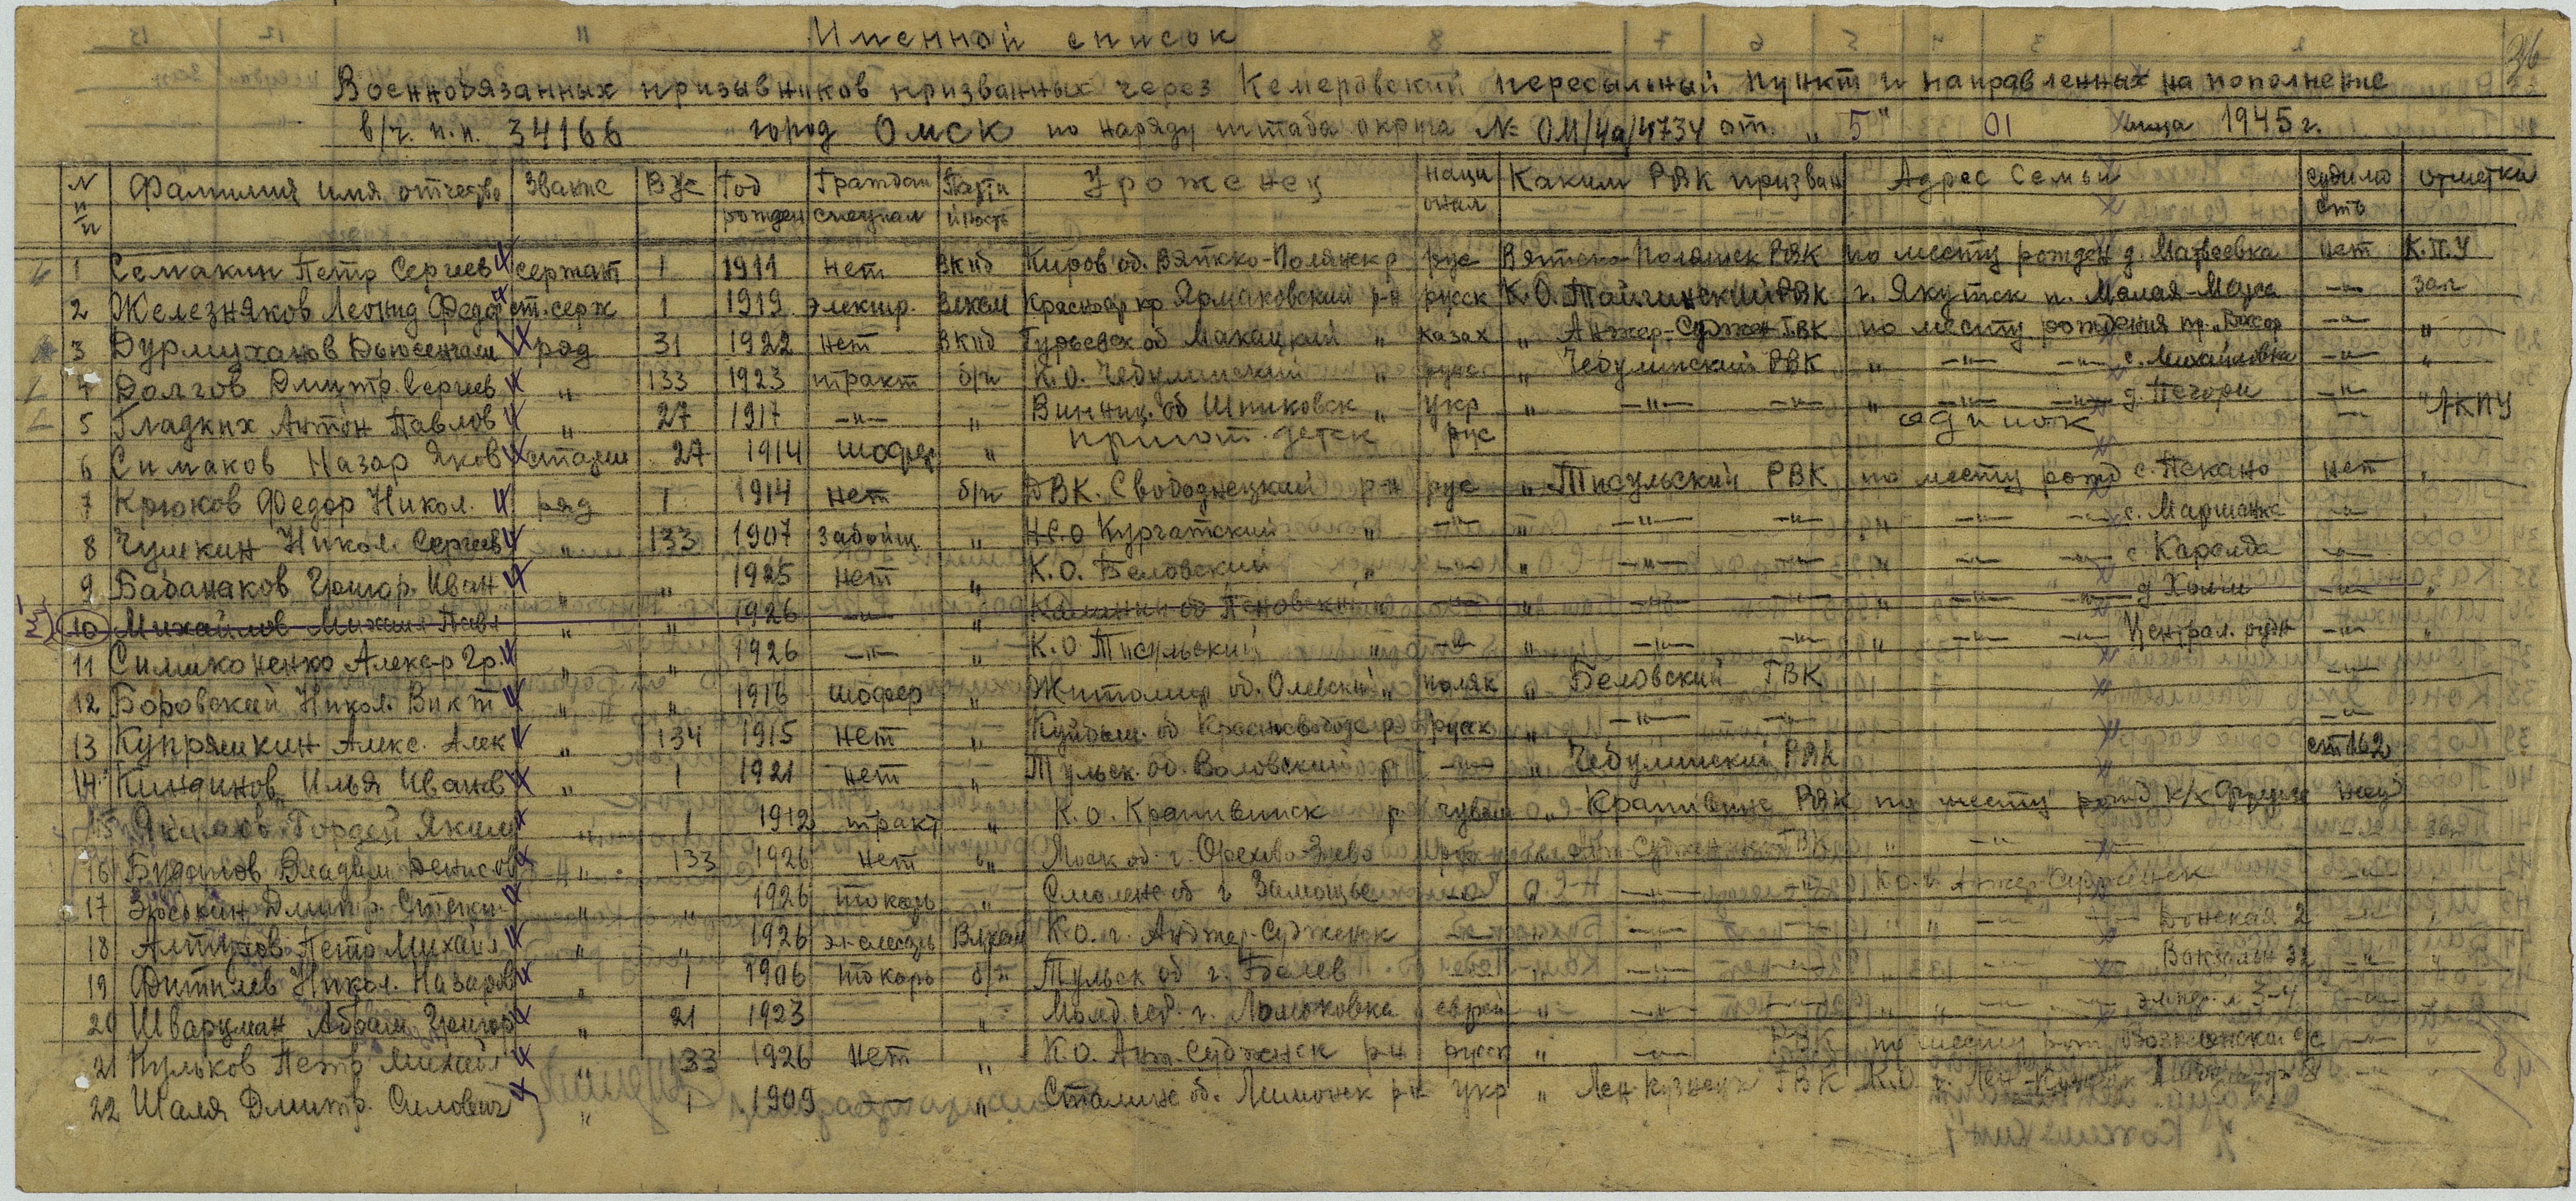 26
Именной список
Военнообязанных призывников призванных через Кемеровский пересыльный пункт и направленных на пополнение
в/ч. п.п. 34166 город Омск по наряду штаба округа № ОМ/4а/4734 от. „ 5 " 01 месяца 1945 г.
№ п/п Фамилия имя отчество Звание ВУС Год рожден Граждан специал Парти йность Уроженец наци онал Каким РВК призван Адрес Семьи судимо сть отметка
1 Семакин Петр Сергеев сержант 1 1911 нет ВКПб Киров об. Вятско-Полянск р рус Вятско-Полянск РВК по месту рожден д. Матвеевка нет К.П.У
2 Железняков Леонид Федор ст. серж 1 1919 электр. Влксм Краснояр кр Ярмаковский р-н русск К.О. Тайгинский РВК г. Якутск п. Малая-Марха —„— зап
3 Дурмуханов Дюсенгали ряд 31 1922 нет ВКПб Гурьевск об Макацкий „ казах „ Анжер-Суджен ГВК по месту рождения пр. —„— „
4 Долгов Дмитр. Сергеев „ 133 1923 тракт б/п К.О. Чебулинский „ русс „ Чебулинский РВК „ —„— —„— с. Михайловка —„— „
5 Гладких Антон Павлов „ 27 1917 —„— „ Винниц. об Шпиковск „ укр „ —„— —„— „ —„— —„— д. Печори —„— " АКПУ
6 Симаков Назар Яков 27 1914 шофер „ приют. детск рус одинок —
7 Крюков Федор Никол. ряд 1 1914 нет б/п ДВК. Свободнецкий р-н рус „ Тисульский РВК по месту рожд с. нет „
8 Чушкин Никол. Сергеев „ 133 1907 забойщ „ Н.С.О Кургатский „ —„— „ —„— —„— „ —„— —„— с. —„— „
9 Бабанаков Григор. Иван „ „ 1925 нет „ К.О. Беловский „ —„— „ —„— —„— „ —„— —„— с. Каролда —„—
10 Михайлов Михаил Павл „ „ 1926 —„— Калинин об Пеновский „ —„— „ —„— —„— „ —„— —„— д. Холм —„— „
11 Симиконенко Алекс-р Гр. „ „ 1926 —„— „ К.О Тисульский „ —„— „ —„— —„— „ —„— —„— Централ. рудн —„— „
12 Боровский Никол. Викт „ „ 1916 шофер „ Житомир об. Олевский „ поляк „ Беловский ГВК —„—
13 Купряшкин Алекс. Алек „ 134 1915 нет „ Куйбыш. об р русск „ —„— „ —„—
14 Киндинов Илья Иванов „ 1 1921 нет „ Тульск. об. Воловский р —„— „ Чебулинский РВК ст 162
15 Якимов Гордей Яким „ 1 1912 тракт „ К.О. Крапивинск р. чуваш „ Крапивинс РВК по месту рожд к/х нет
16 Будылов Владим Денисов „ 133 1926 нет „ Моск об. г. Орехово-Зуево рус „ А Судженск ГВК „ —„— —„— зап
17 Зюськин Дмитр. Степан. „ „ 1926 токарь „ Смоленс об г Замощье —„— „ —„— —„— К.О. г. Анжер-Судженск —„— „
18 Алтухов Петр Михайл „ „ 1926 эл слесарь Влксм К.О. г. Анджер-Судженск —„— „ —„— —„— „ „ —„— —„— Донская 2 —„— „
19 Фитилев Никол. Назаров „ 1 1906 токарь б/п Тульск об г. Белев —„— „ —„— —„— „ „ —„— Вокзальн 32 —„— „
20 Шварцман Абрам Григор „ 21 1923 „ Молд. ССР. г. еврей „ —„— —„— „ „ —„— —„— 3-4 —„— „
21 Кульков Петр Михайл „ 133 1926 нет „ К.О. Анж.-Судженск р-н русск „ —„— РВК по месту рожд с/с —„— „
22 Шаля Дмитр. Силович „ 1 1909 —„— „ Сталинс об. Лиманск р-н укр „ Лен-Кузнецк ГВК К.О. г. Лен-Кузнецк —„— „